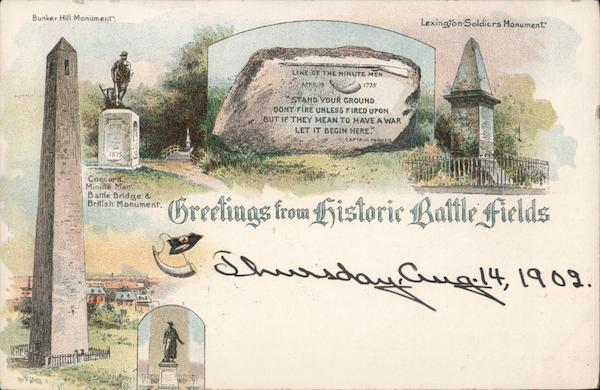 Bunker Hill Monument.
Lexington Soldiers Monument.
LINE OF THE MINUTE MEN
APRIL 19 1775
"STAND YOUR GROUND
DON'T FIRE UNLESS FIRED UPON
BUT IF THEY MEAN TO HAVE A WAR
LET IT BEGIN HERE."
CAPTAIN PARKER
1775
1875
Concord
Minute Man.
Battle Bridge &
British Monument.
Greetings from Historic Battle Fields
Thursday, Aug. 14, 1902.